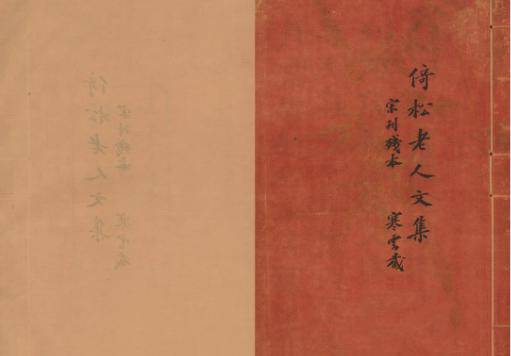 倚松老人文集
宋刊殘本 寒雲藏